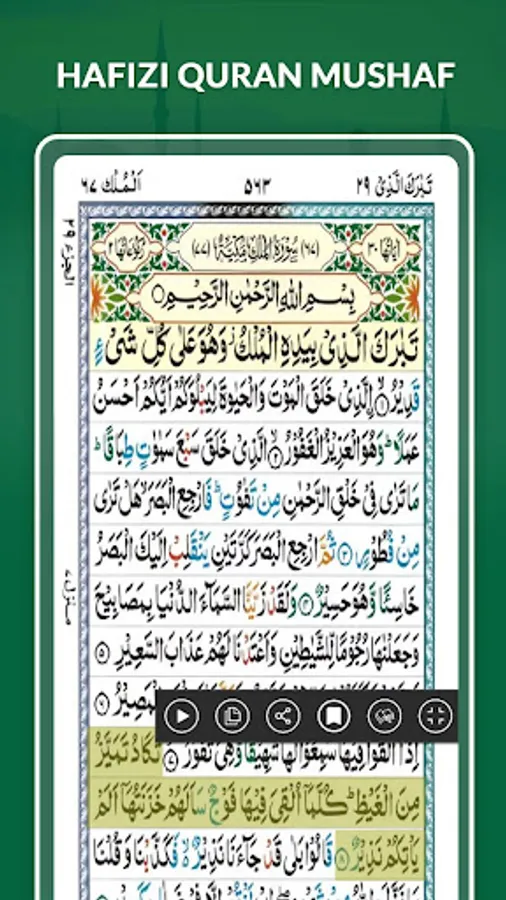 HAFIZI QURAN MUSHAF
تَبٰرَكَ الَّذِیْ ۲۹
۵۶۳
اَلْمُلْك ۶۷
الجزء ۲۹
اٰیَاتُهَا ۳۰
(۶۷) سُوْرَةُ الْمُلْكِ مَكِّیَّةٌ (۷۷)
رُكُوْعَاتُهَا ۲
بِسْمِ اللّٰهِ الرَّحْمٰنِ الرَّحِیْمِ
تَبٰرَكَ الَّذِیْ بِیَدِهِ الْمُلْكُ ؗ وَهُوَ عَلٰی كُلِّ شَیْءٍ
قَدِیْرُ ۙ۝۱ اِ۟لَّذِیْ خَلَقَ الْمَوْتَ وَالْحَیٰوةَ لِیَبْلُوَكُمْ اَیُّكُمْ اَحْسَنُ
عَمَلًا ؕ وَهُوَ الْعَزِیْزُ الْغَفُوْرُ ۙ۝۲ الَّذِیْ خَلَقَ سَبْعَ سَمٰوٰتٍ طِبَاقًا ؕ
مَا تَرٰی فِیْ خَلْقِ الرَّحْمٰنِ مِنْ تَفٰوُتٍ ؕ فَارْجِعِ الْبَصَرَ ۙ هَلْ تَرٰی
مِنْ فُطُوْرٍ ۝۳ ثُمَّ ارْجِعِ الْبَصَرَ كَرَّتَیْنِ یَنْقَلِبْ اِلَیْكَ الْبَصَرُ
خَاسِئًا وَّهُوَ حَسِیْرٌ ۝۴ وَلَقَدْ زَیَّنَّا السَّمَآءَ الدُّنْیَا بِمَصَابِیْحَ
وَجَعَلْنٰهَا رُجُوْمًا لِّلشَّیٰطِیْنِ وَاَعْتَدْنَا لَهُمْ عَذَابَ السَّعِیْرِ ۝۵
الْمَصِیْرُ ۝۶
اِذَاۤ اُلْقُوْا فِیْهَا سَمِعُوْا لَهَا شَهِیْقًا وَّهِیَ تَفُوْرُ ۙ۝۷ تَكَادُ تَمَیَّزُ
مِنَ الْغَیْظِ ؕ كُلَّمَاۤ اُلْقِیَ فِیْهَا فَوْجٌ سَاَلَهُمْ خَزَنَتُهَاۤ اَلَمْ
یَاْتِكُمْ نَذِیْرٌ ۝۸ قَالُوْا بَلٰی قَدْ جَآءَنَا نَذِیْرٌ ۙ۬ فَكَذَّبْنَا وَ قُلْنَا